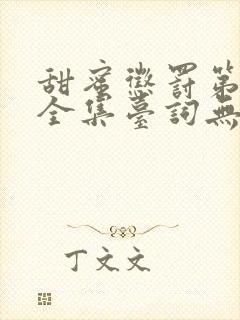 甜蜜懲罰第
全集臺詞無
丁文文